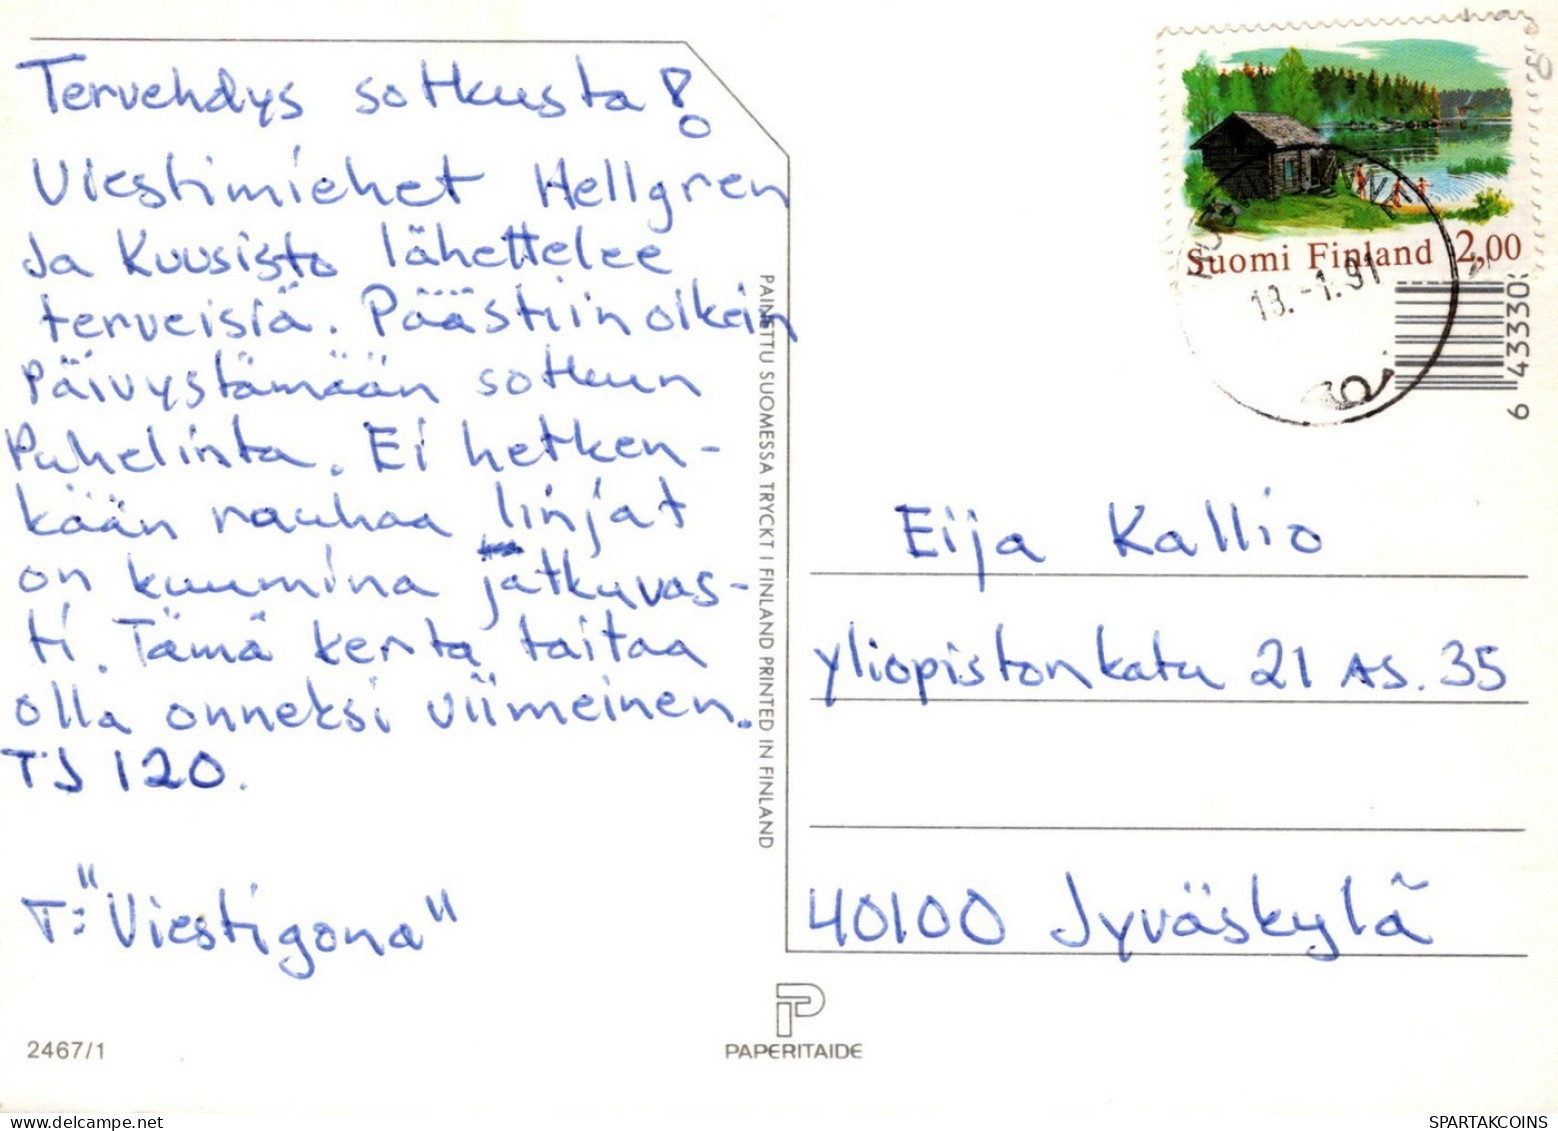 Tervehdys sotkusta!
Viestimiehet Hellgren
Ja Kuusisto lähettelee
terveisiä. Päästiin oikein
Päivystämään sotkun
Puhelinta. Ei hetken-
kään rauhaa linjat
on kuumina jatkuvas-
ti. Tämä kerta taitaa
olla onneksi viimeinen.
TJ 120.
T: "Viestigona"
2467/1
PAINETTU SUOMESSA TRYCKT I FINLAND PRINTED IN FINLAND
PAPERITAIDE
Suomi Finland 2,00
18.-1.91
6 43330
Eija Kallio
yliopistonkatu 21 As. 35
40100 Jyväskylä
SPARTAKCOINS
delcampe.net